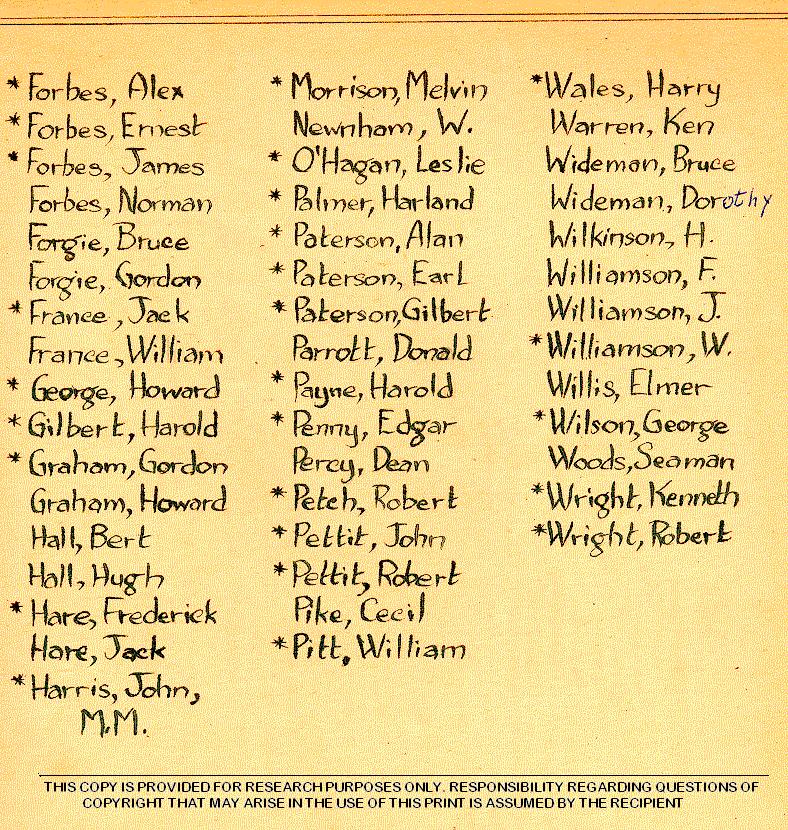 * Forbes, Alex
* Forbes, Ernest
* Forbes, James
Forbes, Norman
Forgie, Bruce
Forgie, Gordon
* France, Jack
France, William
* George, Howard
* Gilbert, Harold
* Graham, Gordon
Graham, Howard
Hall, Bert
Hall, Hugh
* Hare, Frederick
Hare, Jack
* Harris, John,
M.M.
* Morrison, Melvin
Newnham, W.
* O'Hagan, Leslie
* Palmer, Harland
* Paterson, Alan
* Paterson, Earl
* Paterson, Gilbert
Parrott, Donald
* Payne, Harold
* Penny, Edgar
Percy, Dean
* Petch, Robert
* Pettit, John
* Pettit, Robert
Pike, Cecil
* Pitt, William
* Wales, Harry
Warren, Ken
Wideman, Bruce
Wideman, Dorothy
Wilkinson, H.
Williamson, F.
Williamson, J.
* Williamson, W.
Willis, Elmer
* Wilson, George
Woods, Seaman
* Wright, Kenneth
* Wright, Robert
THIS COPY IS PROVIDED FOR RESEARCH PURPOSES ONLY. RESPONSIBILITY REGARDING QUESTIONS OF
COPYRIGHT THAT MAY ARISE IN THE USE OF THIS PRINT IS ASSUMED BY THE RECIPIENT